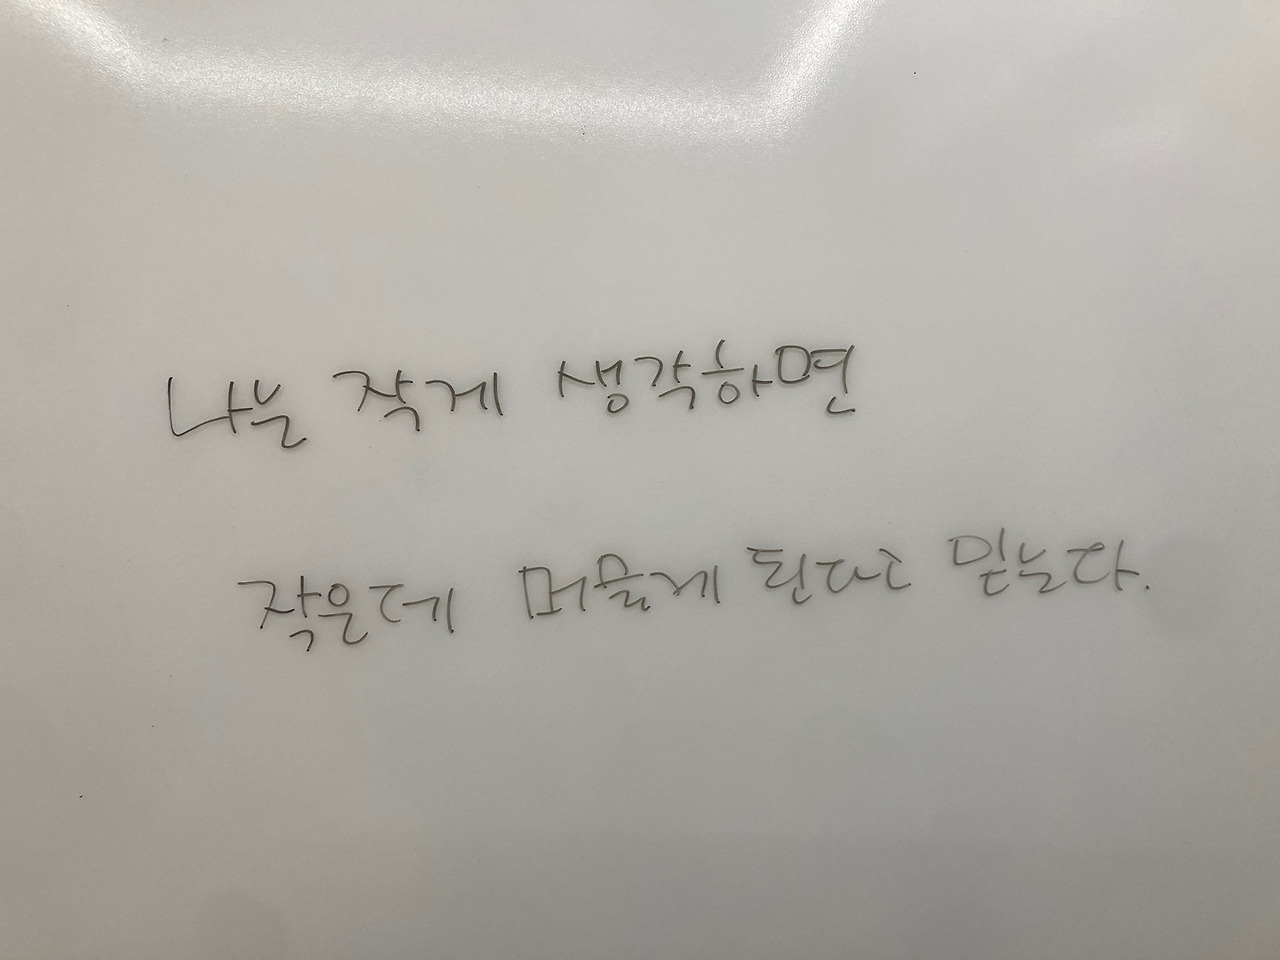 나는 작게 생각하면
작은데 머물게 된다고 믿는다.